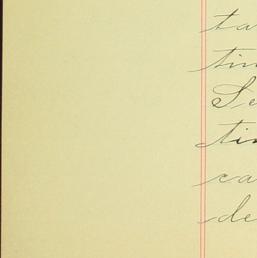 ta
tin
Se
tin
ca
de